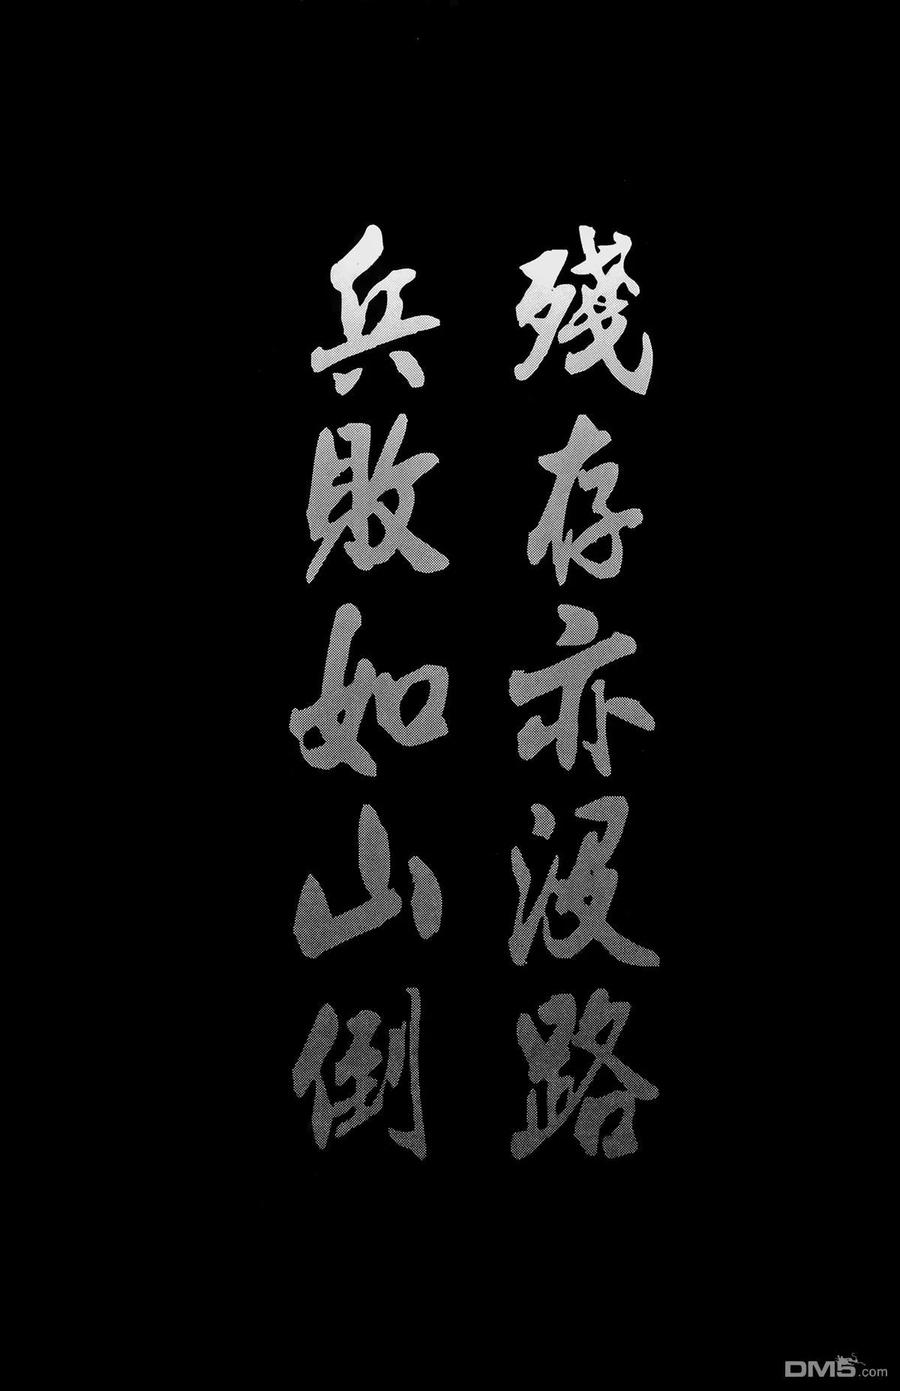 殘存亦沒路
兵敗如山倒
DM5.com